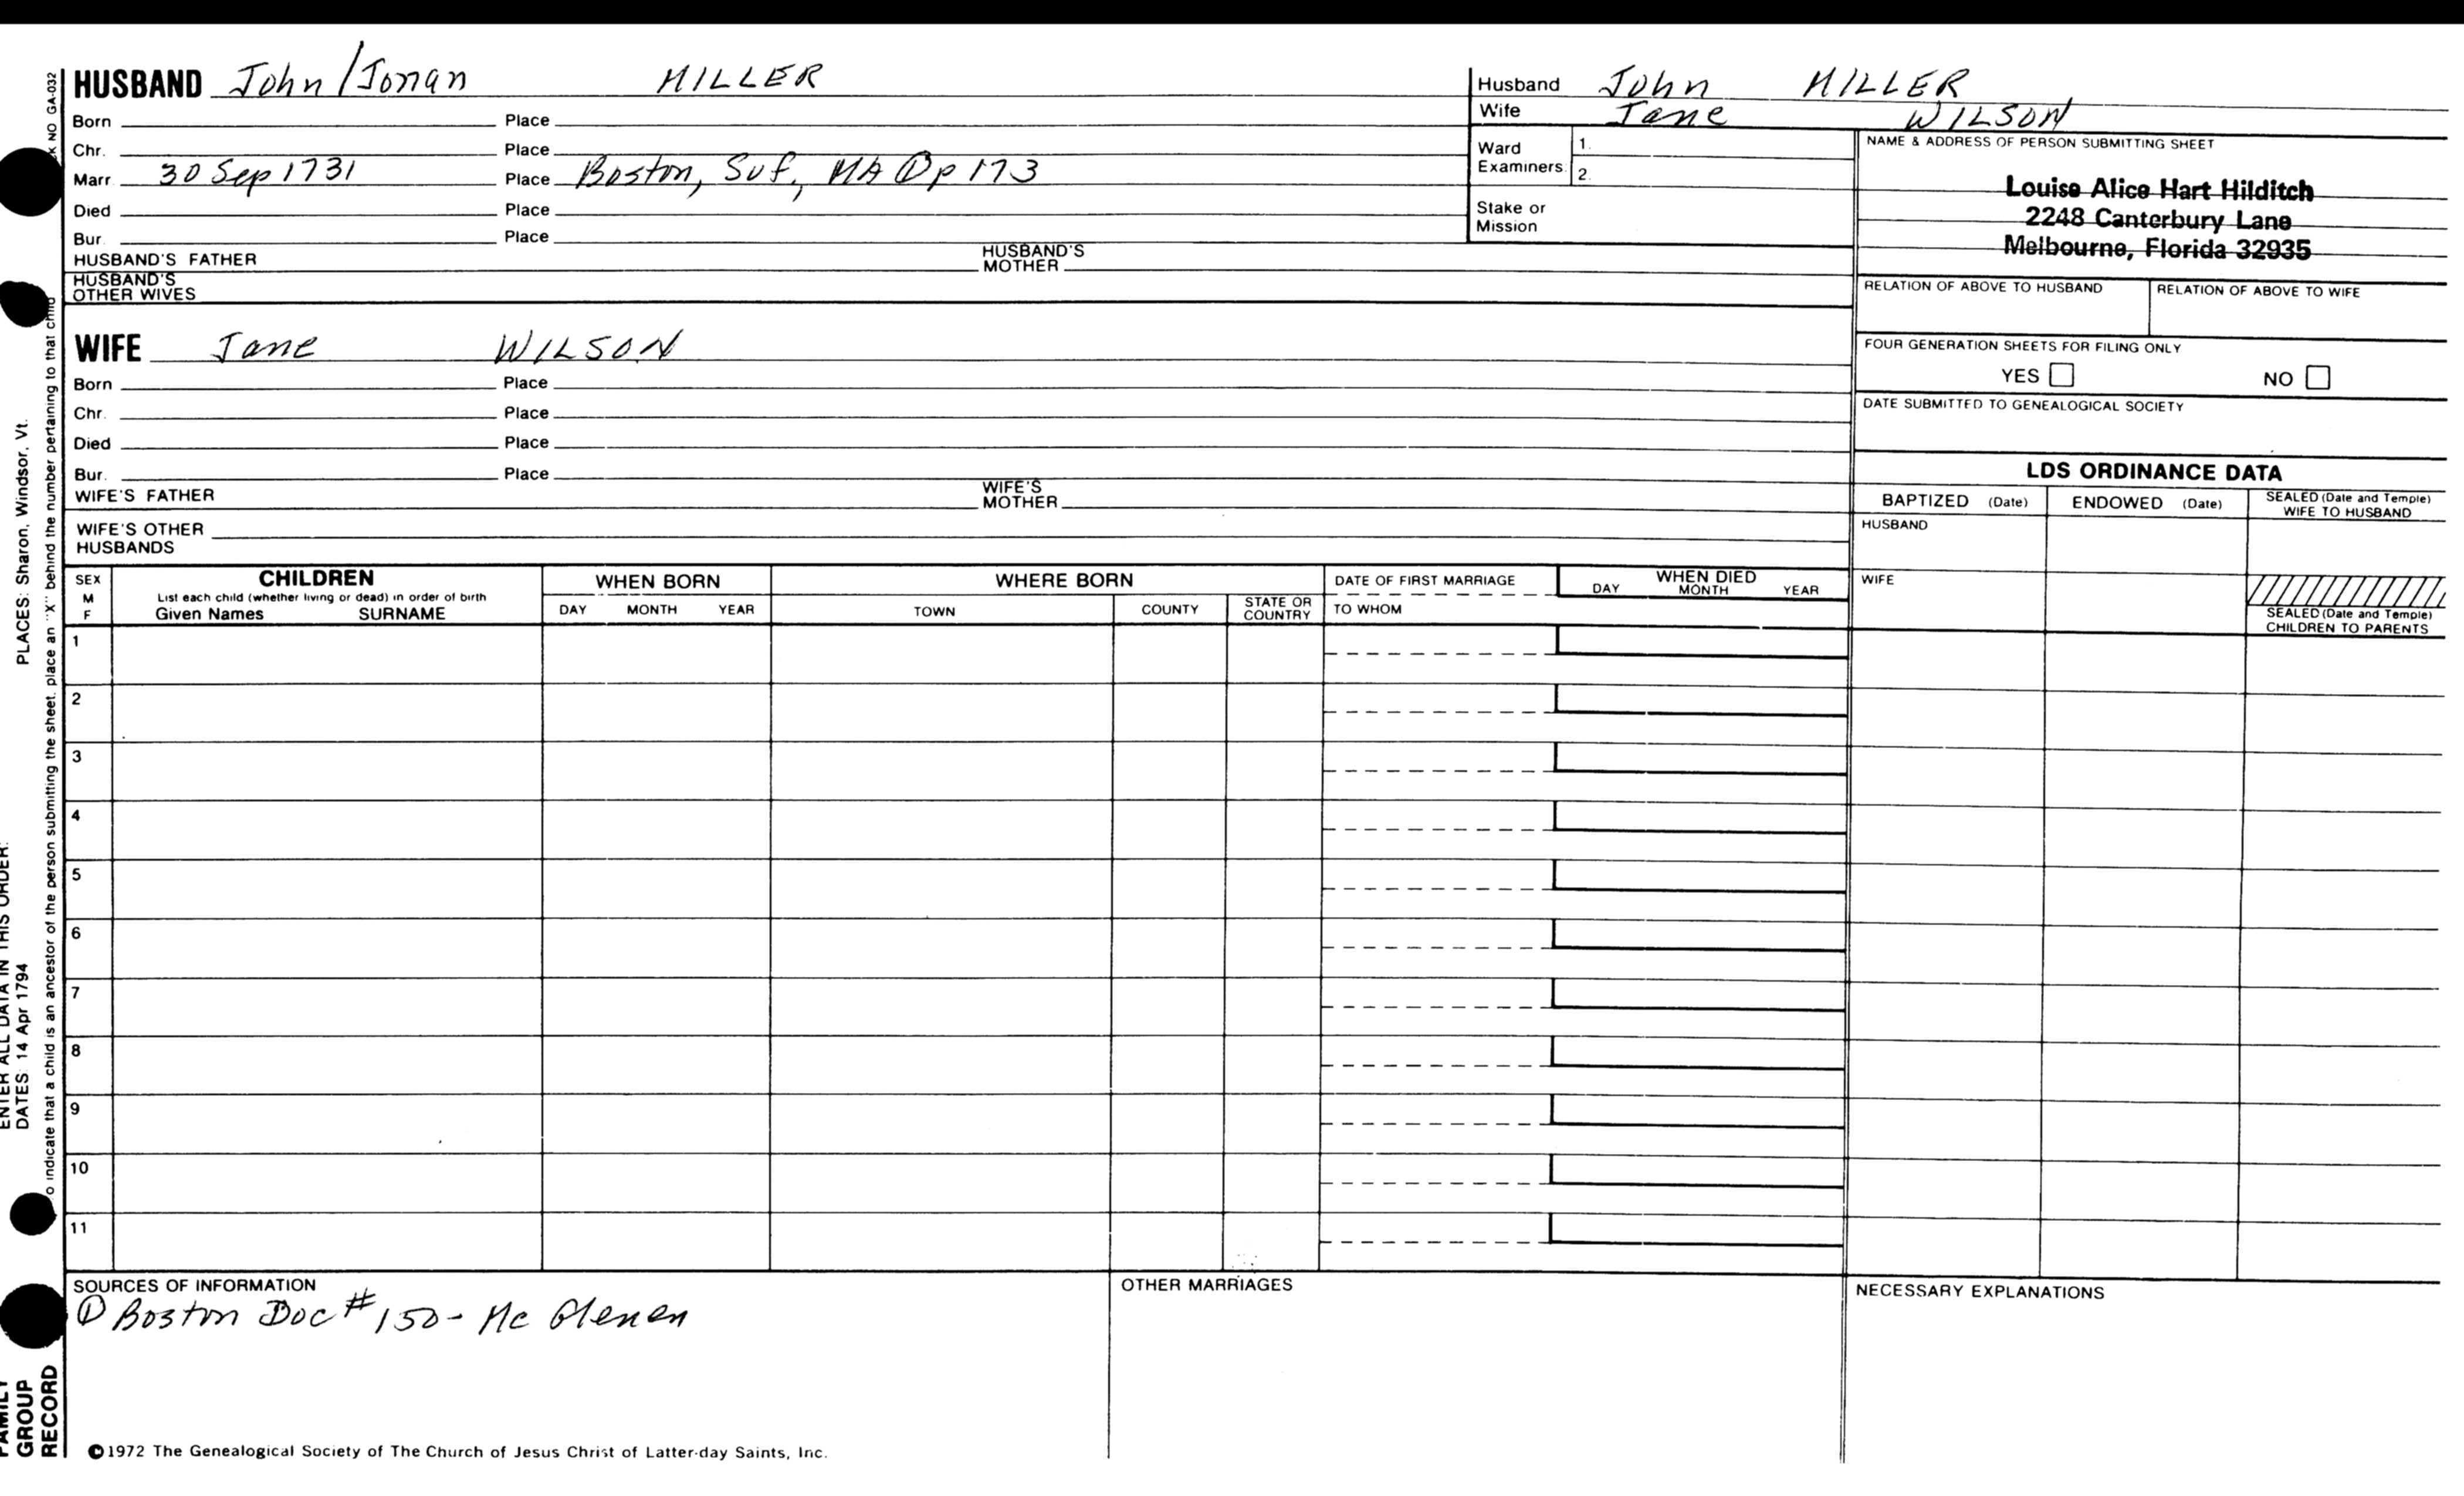 HUSBAND John/Jonan MILLER
Born Place
Chr. Place
Marr. 30 Sep 1731 Place Boston, Suf, MA ① p 173
Died Place
Bur. Place
HUSBAND'S FATHER HUSBAND'S MOTHER
HUSBAND'S OTHER WIVES
Husband John MILLER
Wife Jane WILSON
Ward Examiners 1. 2.
Stake or Mission
NAME & ADDRESS OF PERSON SUBMITTING SHEET
Louise Alice Hart Hilditch
2248 Canterbury Lane
Melbourne, Florida 32935
RELATION OF ABOVE TO HUSBAND RELATION OF ABOVE TO WIFE
FOUR GENERATION SHEETS FOR FILING ONLY
YES NO
DATE SUBMITTED TO GENEALOGICAL SOCIETY
WIFE Jane WILSON
Born Place
Chr. Place
Died Place
Bur. Place
WIFE'S FATHER WIFE'S MOTHER
WIFE'S OTHER HUSBANDS
LDS ORDINANCE DATA
BAPTIZED (Date) ENDOWED (Date) SEALED (Date and Temple) WIFE TO HUSBAND
HUSBAND
WIFE
SEALED (Date and Temple) CHILDREN TO PARENTS
SEX M F
CHILDREN
List each child (whether living or dead) in order of birth
Given Names SURNAME
WHEN BORN
DAY MONTH YEAR
WHERE BORN
TOWN COUNTY STATE OR COUNTRY
DATE OF FIRST MARRIAGE
TO WHOM
WHEN DIED
DAY MONTH YEAR
1
2
3
4
5
6
7
8
9
10
11
SOURCES OF INFORMATION
① Boston Doc # 150 - Mc Glenen
OTHER MARRIAGES
NECESSARY EXPLANATIONS
©1972 The Genealogical Society of The Church of Jesus Christ of Latter-day Saints, Inc.
NO GA-032
PLACES: Sharon, Windsor, Vt.
ENTER ALL DATA IN THIS ORDER:
DATES: 14 Apr 1794
indicate that a child is an ancestor of the person submitting the sheet, place an "X" behind the number pertaining to that child
FAMILY
GROUP
RECORD